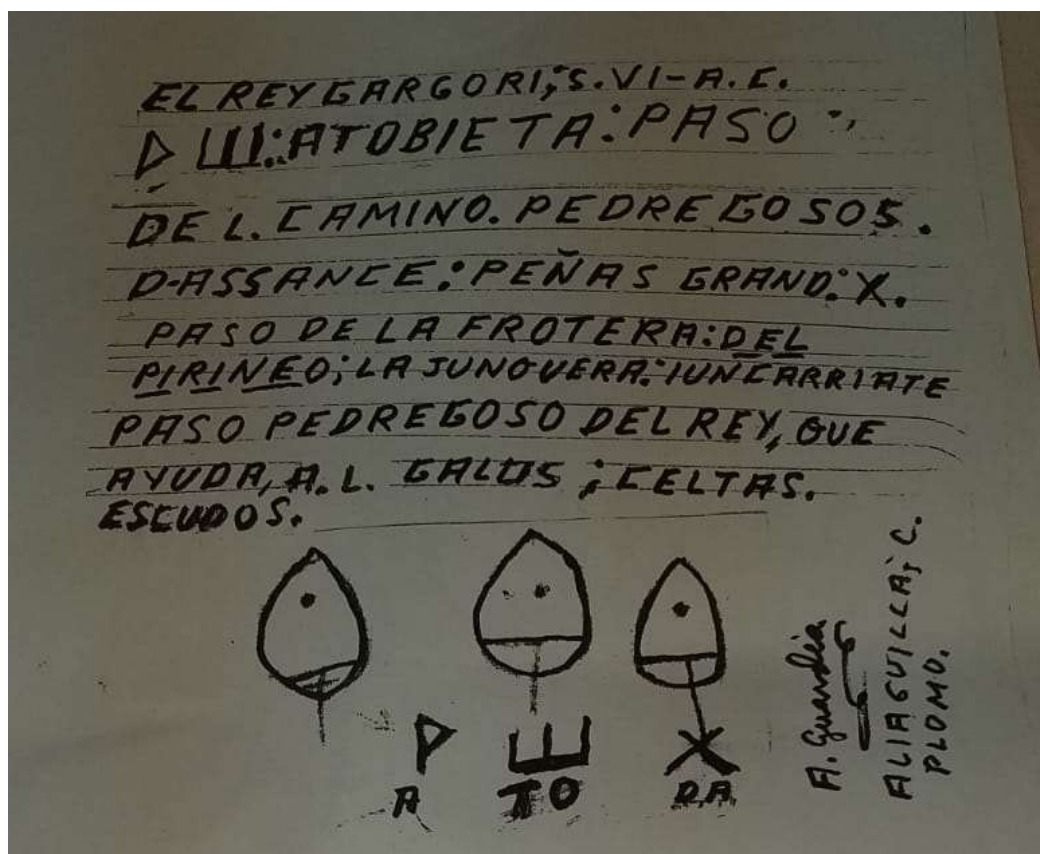 EL REY GARGORI; S. VI-A.C.
ATOBIETA: PASO
DE L. CAMINO. PEDREGOSOS.
D-ASSANCE: PEÑAS GRAND: X.
PASO DE LA FROTERA: DEL
PIRINEO; LA JUNQUERA: IUNCARRIATE
PASO PEDREGOSO DEL REY, QUE
AYUDA, A. L. GALOS; CELTAS.
ESCUDOS.
A TO DA
A. Guardia
ALIAGUILLA; C.
PLOMO.